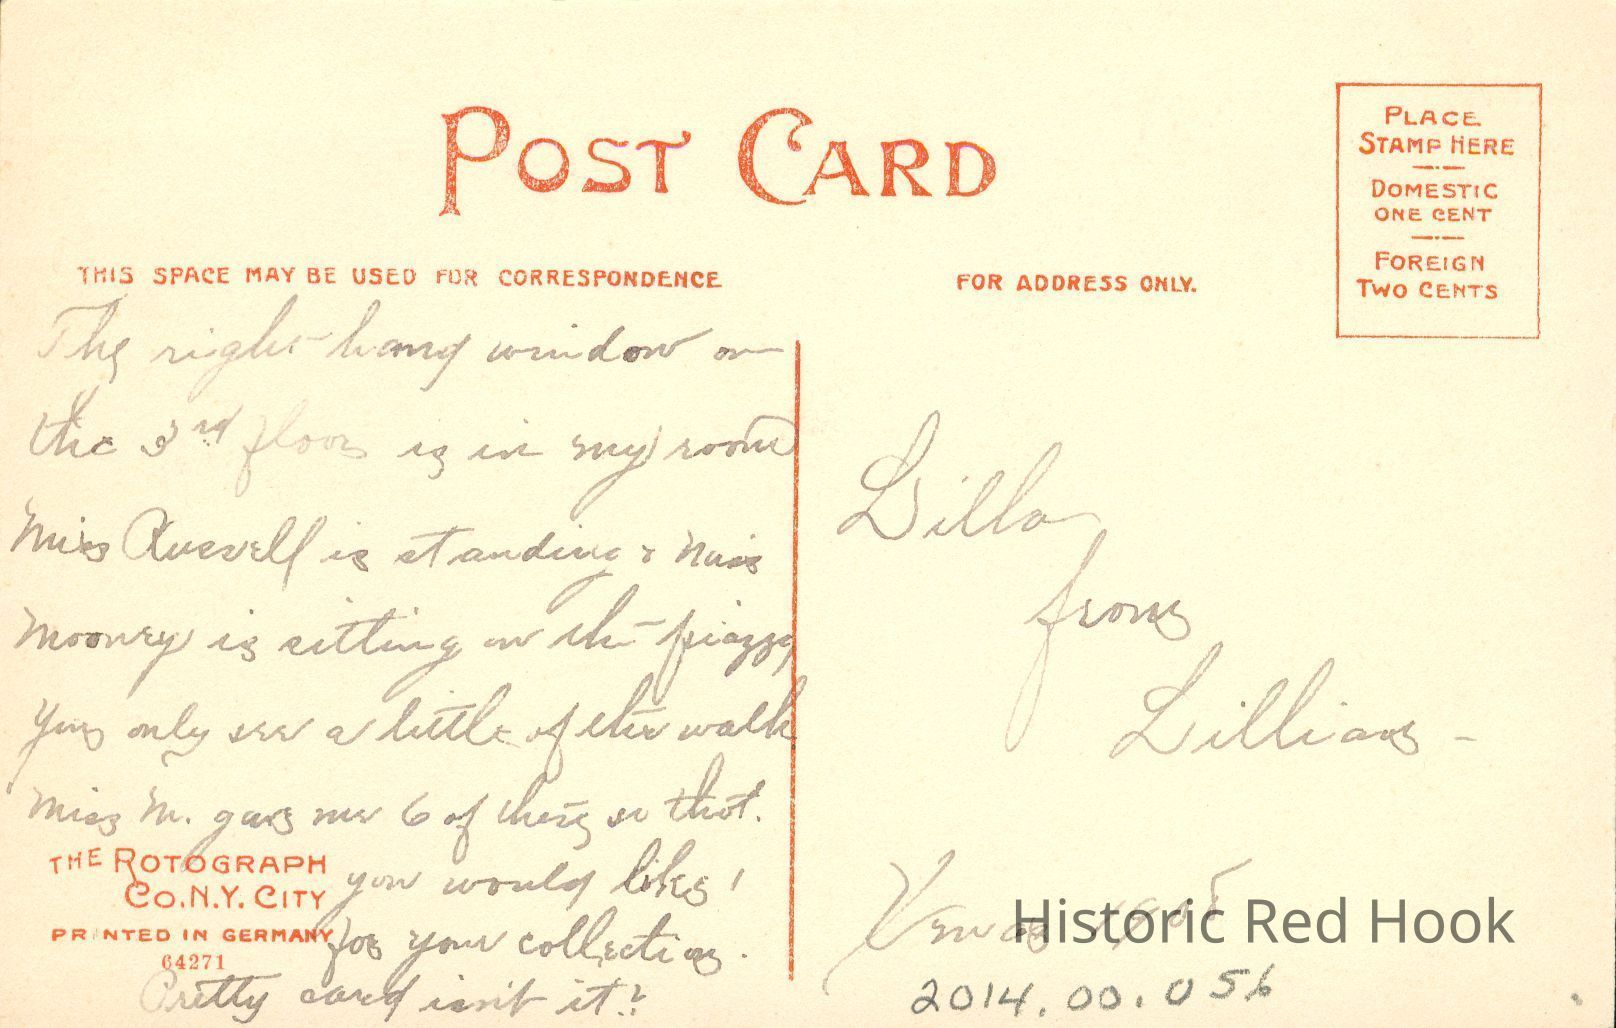 POST CARD
PLACE
STAMP HERE
DOMESTIC
ONE CENT
FOREIGN
TWO CENTS
THIS SPACE MAY BE USED FOR CORRESPONDENCE
FOR ADDRESS ONLY.
The right hand window on
the 3rd floor is in my room
Miss Russell is standing & Miss
Mooney is sitting on the piazza
You only see a little of the walk
Miss M. gave me 6 of these so that.
you would like 1
for your collection.
Pretty card isn't it?
THE ROTOGRAPH
CO. N.Y. CITY
PRINTED IN GERMANY
64271
Dilla
from
Lillian -
Historic Red Hook
2014.00.056